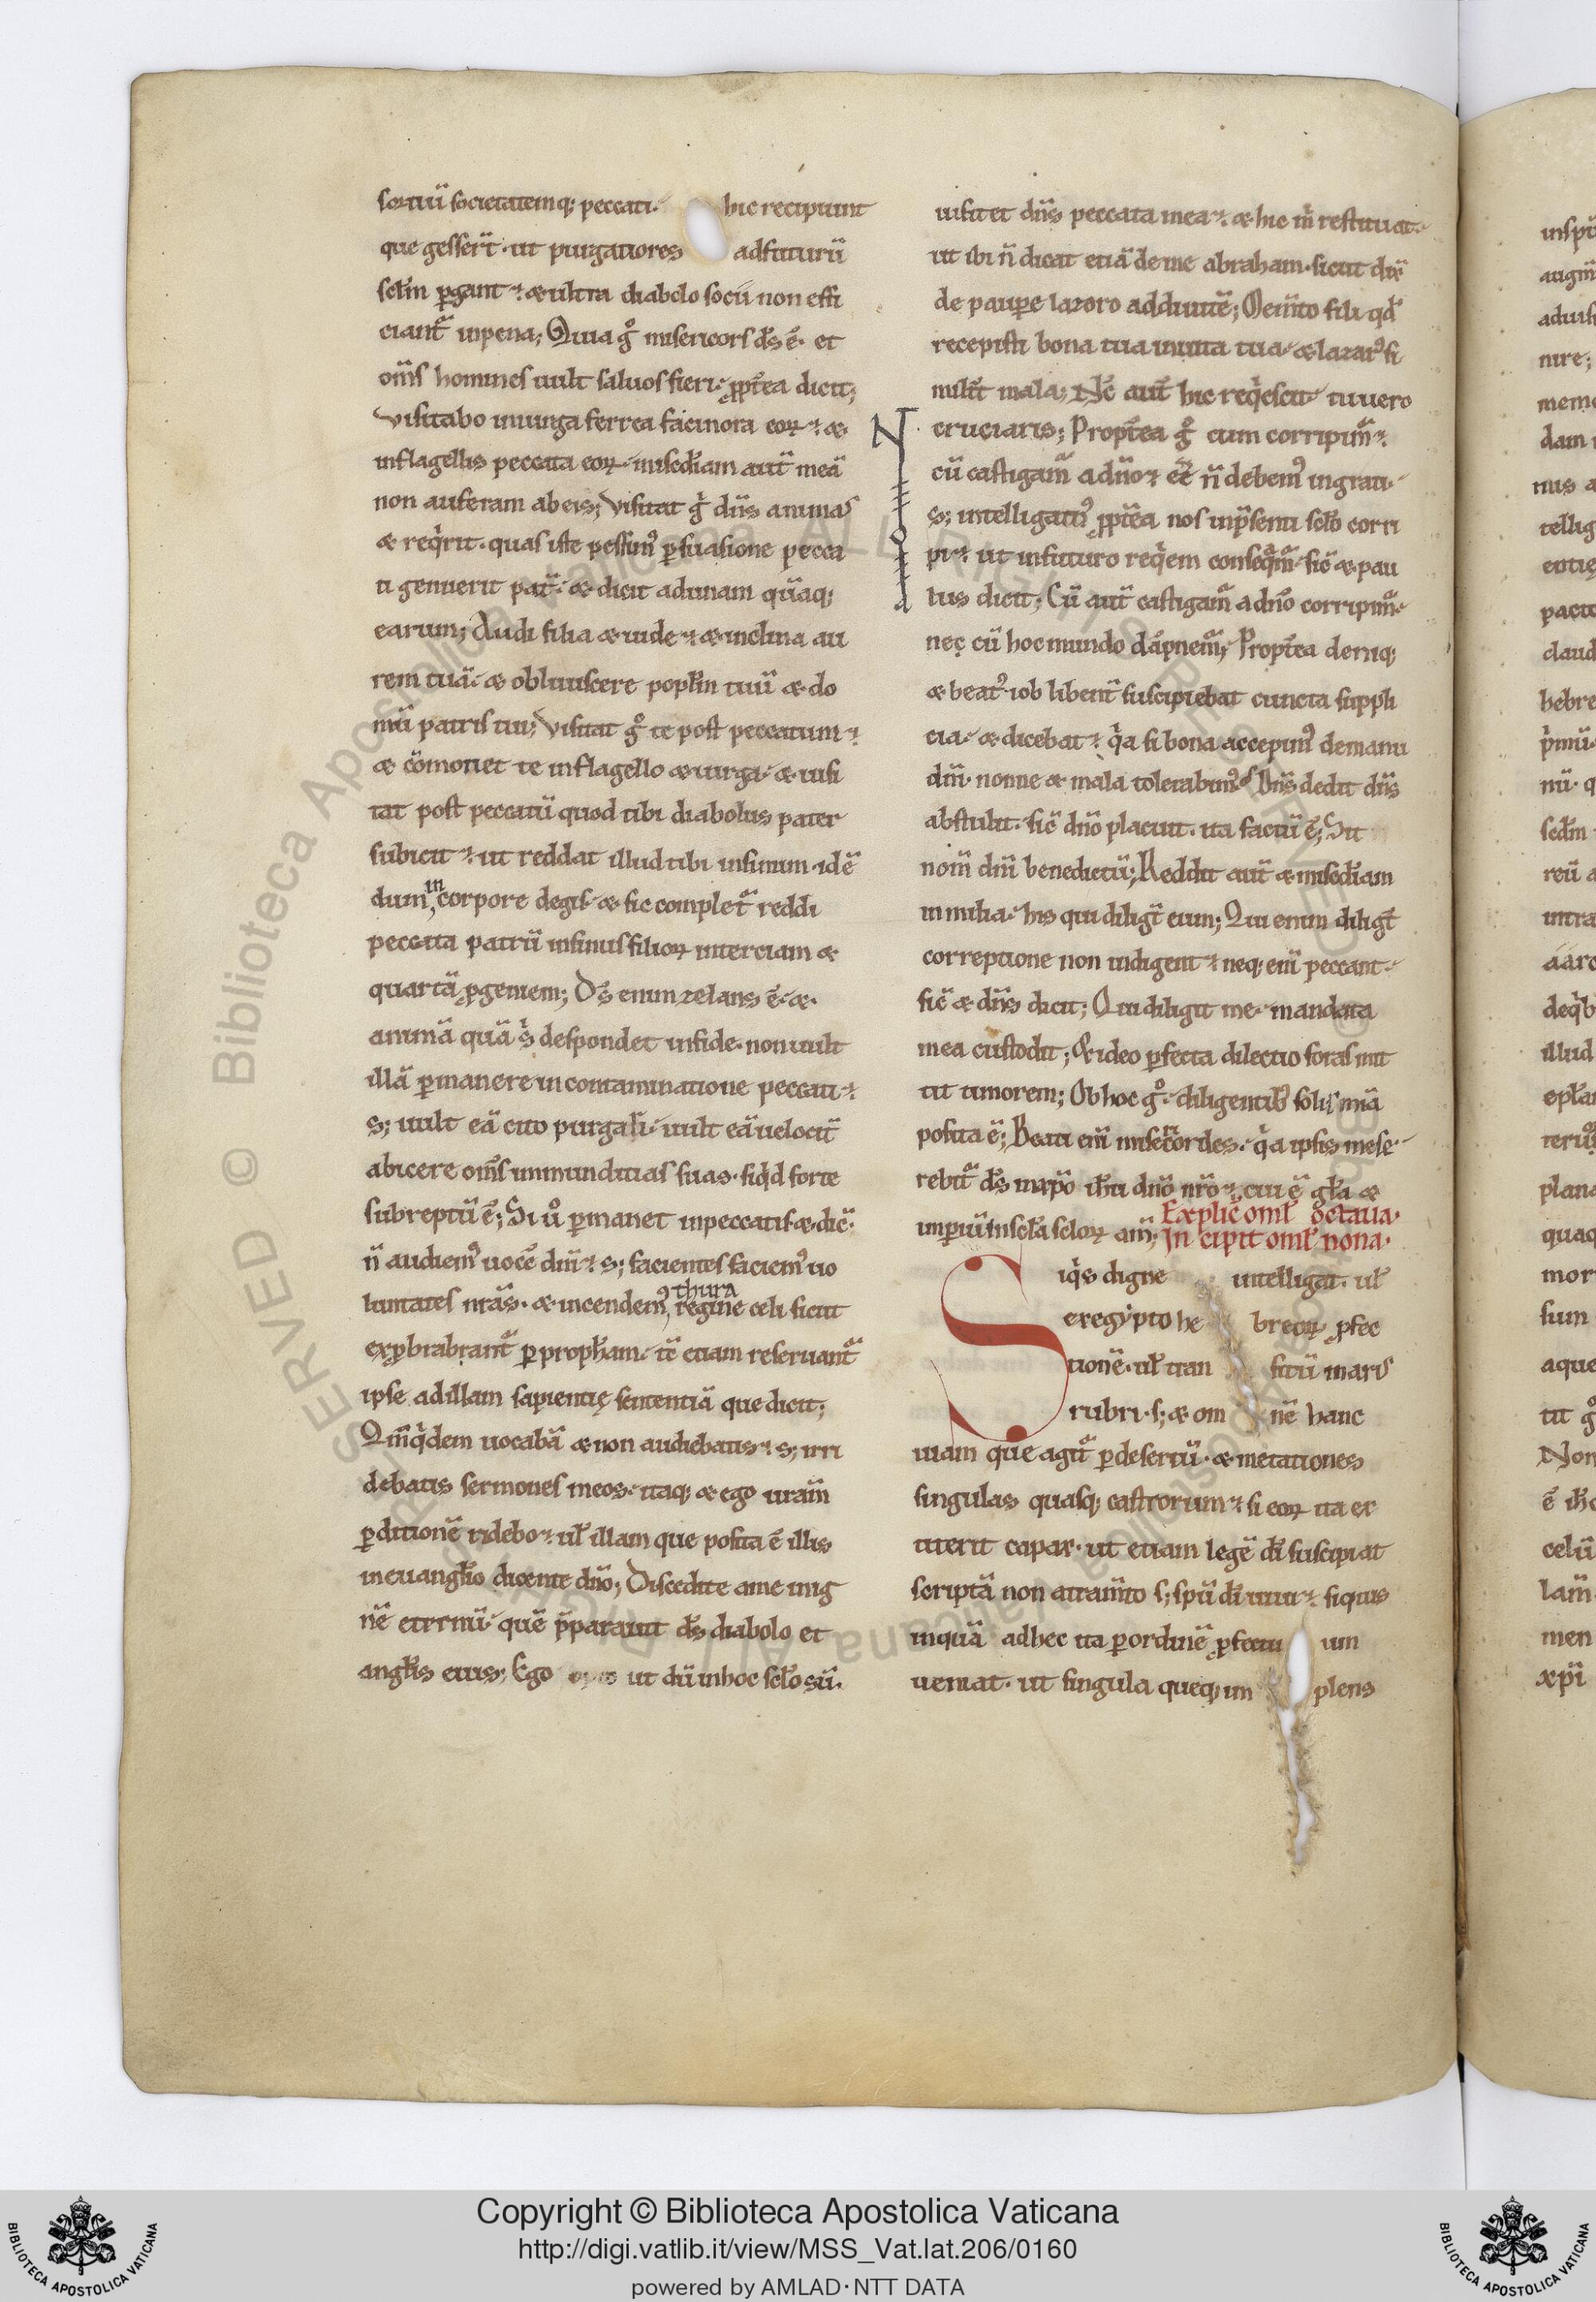 sortiũ societatemq; peccati· hic recipiunt
que gesser̃t · ut purgatiores ad futurũ
sct̃m ꝑgant · & ultra diabolo socii non effi
ciant᷑ in pena; Quia gͦ misericors d̃s ẽ · et
om̃s homines uult saluos fieri · ꝓpt̃ea dicit;
Visitabo in uirga ferrea facinora eoꝝ · &
in flagellis peccata eoꝝ · mise͂diam aut̃ meã
non auferam ab eis; Visitat gͦ dñs animas
& req̇rit · quas iste pessim᷒ ꝑsuasione pecca
ti genuerit pat̃ · & dicit ad unam quãq;
earum; Audi filia & uide · & inclina au
rem tuã · & obliuiscere popl̃m tuũ & do
mũ patris tui; Visitat gͦ te post peccatum ·
& cõmonet te in flagello & uirga · & uisi
tat post peccatũ quod tibi diabolus pater
subicit · ut reddat illud tibi in sinum · idẽ
dum in corpore degis · & sic complet᷑ reddi
peccata patrũ in sinus filioꝝ in terciam &
quartã ꝓgeniem; D̃s enim zelans ẽ · &
animã quã s̓ despondet in fide · non uult
illã ꝑmanere in contaminatione peccati ·
s; uult eã cito purgari · uult eã uelocit̃
abicere om̃s inmunditias suas · siq̇d forte
subreptũ ẽ; Si uͦ ꝑmanet in peccatis · & dic̃
ñ audiem᷒ uocẽ dñi · s; facientes faciem᷒ uo
luntates nr̃as · & incendem᷒ thura regine celi sicut
exꝓbrabrant᷑ ꝑ proph̃am · tc̃ etiam reseruant᷑
ipse ad illam sapientię sententiã que dicit;
Qm̃q̇dem uocabã & non audiebatis · s; irri
debatis sermones meos · itaq; & ego uram̃
ꝑditionẽ ridebo · ul̃ illam que posita ẽ illis
in euangl̃io dicente dñо; Discedite a me in ig
nẽ eternũ · quẽ p̃parauit d̃s diabolo et
angl̃is eius; Ego ut dũ in hoc scl̃o sũ ·
uisitet dñs peccata mea · & hic m̓ restituat ·
ut ibi ñ dicat etiã de me abraham · sicut dix̃
de paupe lazoro ad diuitẽ; Mem̃to fili qd̃
recepisti bona tua in uita tua · & lazar᷒ si
milit̃ mala; Nc̃ aut̃ hic req̇escit · tu uero
cruciaris; Propt̃ea gͦ cum corripim᷑ ·
cũ castigam᷑ a dño · eẽ ñ debem᷒ ingrati ·
s; intelligam᷒ ꝓpt̃ea nos in p̃senti scl̃o corri
pi · ut in futuro req̇em conseq̃m᷑ · sic̃ & pau
lus dicit; Cũ aut̃ castigam᷑ a dñо corripim᷑ ·
N
o
t
a
nec cũ hoc mundo dãpnem᷑; Propt̃ea deniq;
& beat᷒ iob libent̃ suscipiebat cuncta suppli
cia · & dicebat · q̇a si bona accepim᷒ de manu
dñi · nonne & mala tolerabim᷒; Dñs dedit dñs
abstulit · sic̃ dño placuit · ita factũ ẽ; Sit
nom̃ dñi benedictũ; Reddit aut̃ & mise͂diam
in milia · his qui diligt̃ eum; Qui enim diligt̃
correptione non indigent · neq; eni̇̃ peccant ·
sic̃ & dñs dicit; Qui diligit me · mandata
mea custodit; & ideo ꝑfecta dilectio foras mit
tit timorem; Ob hoc gͦ · diligentib᷒ solis mĩa
posita ẽ; Beati eni̇̃ misec̃ordes · q̇a ipsis mise ·
rebit᷑ d̃s in xp̃o ih̃u dño nr̃o · cui ẽ gl̃a &
imꝑiũ in scl̃a scloꝝ am̃;
Explic̃ oml̃ octaua ·
Incipit oml̃ nona ·
Siq̇s digne intelligat · ul̃
ex egypto hebreoꝝ ꝓfec
tionẽ · ul̃ transitũ maris
rubri · s; & omnẽ hanc
uiam que agit᷑ ꝑ desertũ · & metationes
singulas quasq; castrorum · si eoꝝ ita ex
titerit capax · ut etiam legẽ di̇̃ suscipiat
scriptã non atram̃to s; sp̃u di̇̃ uiui · siquis
inquã adhec ita ꝑ ordinẽ ꝓfectuum
ueniat · ut singula queq; implens
Copyright © Biblioteca Apostolica Vaticana
http://digi.vatlib.it/view/MSS_Vat.lat.206/0160
powered by AMLAD·NTT DATA